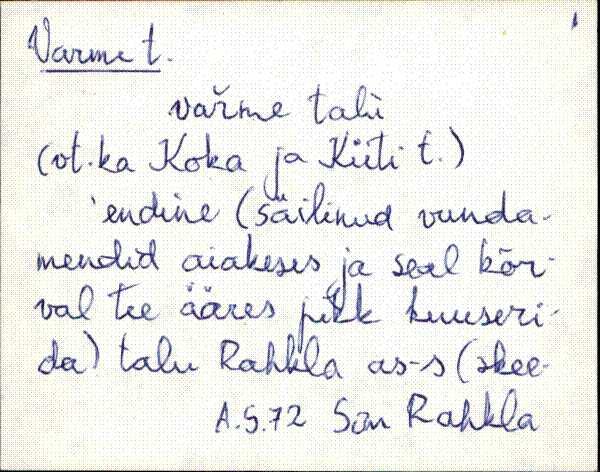 Varme t.
var̆me talu
(vt. ka Koka ja Kiiti t.)
'endine (säilinud vunda-
mendid aiakeses ja seal kõr-
val tee ääres pikk kuuseri-
da) talu Rahkla as-s (skee-
A.S.72 Sim Rahkla